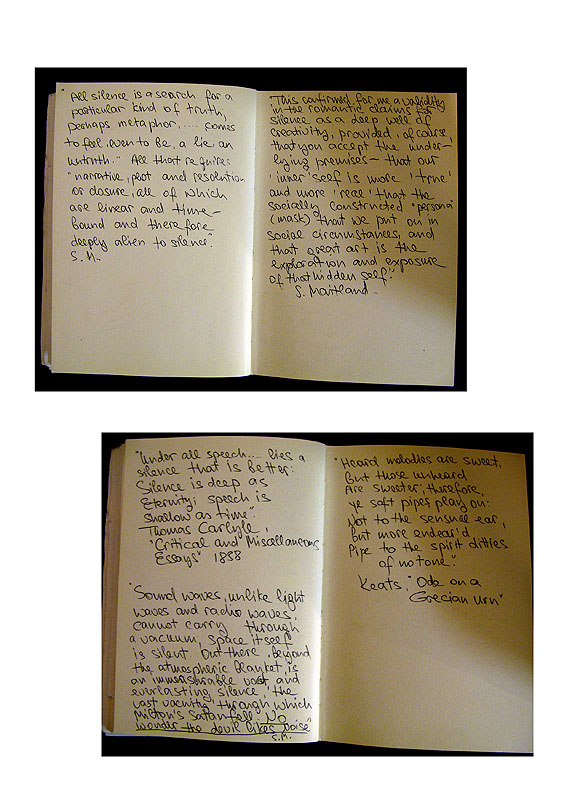 "All silence is a search for a
particular kind of truth,
perhaps metaphor, .... comes
to feel, even to be, a lie, an
untruth." All that requires
"narrative, plot and resolution
or closure, all of which
are linear and time-
bound and therefore
deeply alien to silence."
S.M.
"This confirmed for me a validity
in the romantic claims for
silence as a deep well of
creativity, provided, of course,
that you accept the under-
lying premises - that our
'inner' self is more 'true'
and more 'real' that the
socially constructed 'persona'
(mask) that we put on in
social circumstances, and
that great art is the
exploration and exposure
of that hidden self."
S. Maitland
"Under all speech.... lies a
silence that is better:
Silence is deep as
Eternity; speech is
shallow as time".
Thomas Carlyle,
"Critical and Miscellaneous
Essays" 1838
"Sound waves, unlike light
waves and radio waves,
cannot carry through
a vacuum, space itself
is silent. Out there, beyond
the atmospheric blanket, is
an immeasurable vast and
everlasting silence, 'the
vast vacuity' through which
Milton's Satan fell. No
wonder the devil likes noise"
S.M.
"Heard melodies are sweet,
But those unheard
Are sweeter; therefore,
ye soft pipes, play on:
Not to the sensual ear,
but more endear'd
Pipe to the spirit ditties
of no tone".
Keats, "Ode on a
Grecian urn"